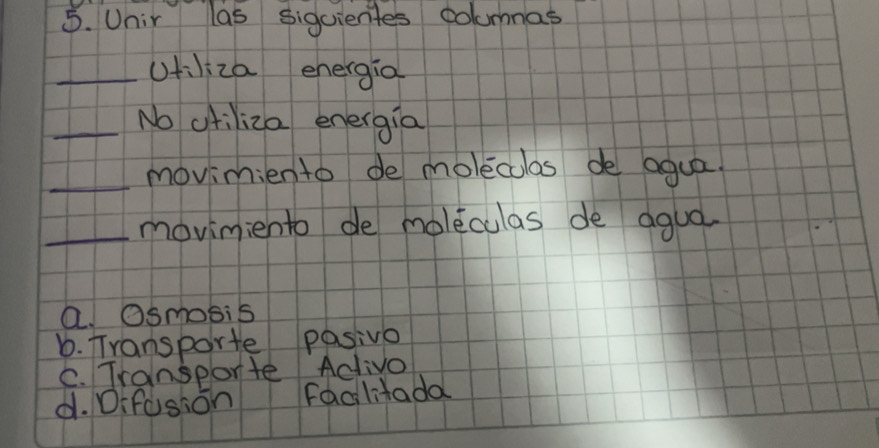 5. Unir las siguientes columnas
____ Utiliza energía
____ No utiliza energía
____ movimiento de moléculas de agua.
____ movimiento de moléculas de agua
a. Osmosis
b. Transporte pasivo
c. Transporte Activo
d. Difusión Facilitada